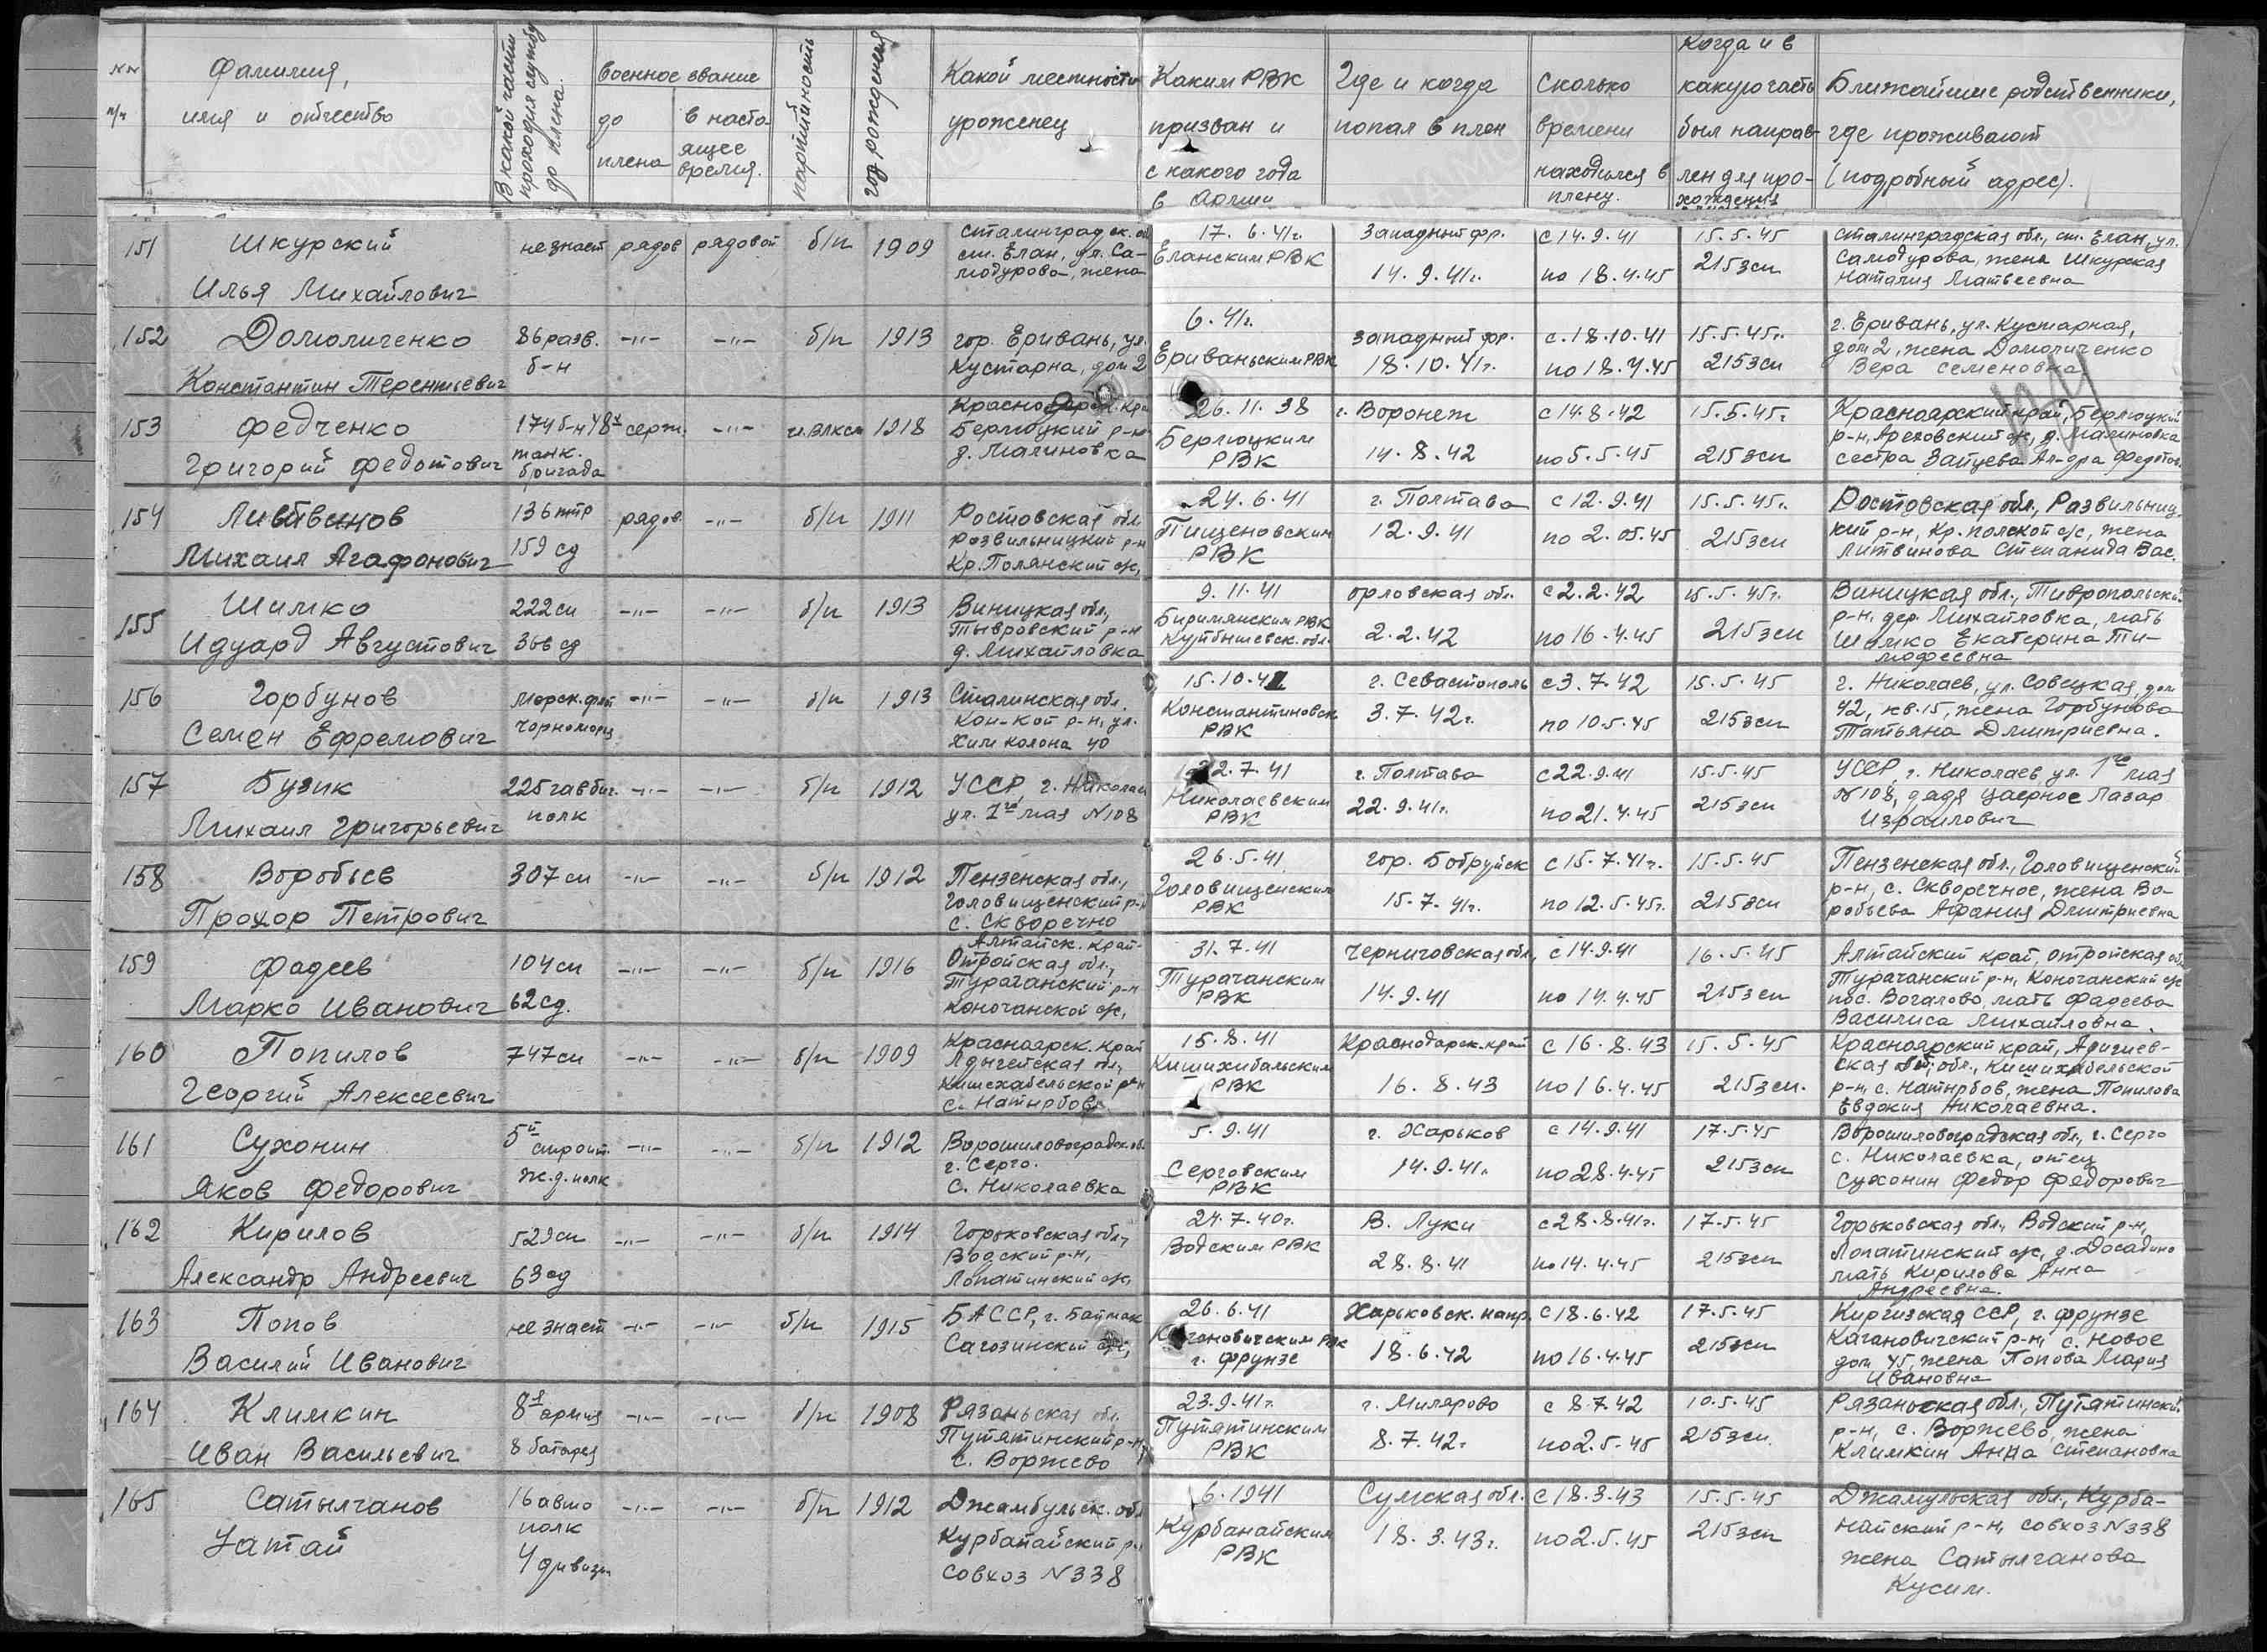 №№ п/п
Фамилия,
имя и отчество
В какой части
проходил службу
до плена
Военное звание
до
плена
в насто-
ящее
время.
партийность
год рождения
Какой местности
уроженец
Каким РВК
призван и
с какого года
в армии
Где и когда
попал в плен
Сколько
времени
находился в
плену.
Когда и в
какую часть
был направ-
лен для про-
хождения
Ближайшие родственники,
где проживают
(подробный адрес).
151 Шкурский не знает рядов рядовой б/п 1909 Сталинградск. об 17.6.41г. Западный фр. с 14.9.41 15.5.45 Сталинградская обл., ст. Елан, ул.
ст. Елан, ул. Са- Еланским РВК 14.9.41г. по 18.4.45 215зсп Самодурова, жена Шкурская
Илья Михайлович модурова, жена Наталия Матвеевна
152 Домоличенко 86 разв. -"- -"- б/п 1913 гор. Еривань, ул. 6.41г. Западный фр. с 18.10.41 15.5.45г. г. Еривань, ул. Кустарная,
Константин Терентьевич б-н Кустарна, дом 2 Ериваньским РВК 18.10.41г. по 18.4.45 215зсп дом 2, жена Домоличенко
Вера Семеновна
153 Федченко 174 б-н 48 серж. -"- чл. ВЛКСМ 1918 26.11.38 г. Воронеж с 14.8.42 15.5.45г Красноярский край, Берлюцкий
Григорий Федотович танк. Берлюцкий р-н Берлюцким 14.8.42 по 5.5.45 215зсп р-н, д. Малиновка
бригада д. Малиновка РВК сестра Зайцева Ал-дра Федотов.
154 Литвинов 136 рядов. -"- б/п 1911 Ростовская обл. 24.6.41 г. Полтава с 12.9.41 15.5.45г. Ростовская обл., Развильниц
Михаил Агафонович 159 сд Развильницкий р-н РВК 12.9.41 по 2.05.45 215зсп кий р-н, Кр. полской с/с, жена
Кр. Полянский с/с, Литвинова Степанида Вас.
155 Шимко 222 сп -"- -"- б/п 1913 Виницкая обл., 9.11.41 Орловская обл. с 2.2.42 15.5.45г. Виницкая обл., Тивропольский
Идуард Августович 366 сд Тывровский р-н Биримянским РВК 2.2.42 по 16.4.45 215зсп р-н, дер. Михайловка, мать
д. Михайловка Куйбышевск. обл. Шимко Екатерина Ти-
мофеевна
156 Горбунов Морск. флот -"- -"- б/п 1913 Сталинская обл. 15.10.41 г. Севастополь с 3.7.42 15.5.45 г. Николаев, ул. Совецкая, дом
Семен Ефремович Черноморц Кон-кой р-н, ул. Константиновск 3.7.42г. по 10.5.45 215зсп 42, кв. 15, жена Горбунова
Хим колона 40 РВК Татьяна Дмитриевна.
157 Бузик 225 гавбиг. -"- -"- б/п 1912 УССР, г. Николаев 22.7.41 г. Полтава с 22.9.41 15.5.45 УССР, г. Николаев, ул. 1го мая
Михаил Григорьевич полк ул. 1го мая N108 Николаевским РВК 22.9.41г. по 21.4.45 215зсп N108, дядя Лазар
Израилович
158 Воробьев 307 сп -"- -"- б/п 1912 Пензенская обл., 26.5.41 гор. Бобруйск с 15.7.41г. 15.5.45 Пензенская обл., Головищенский
Прохор Петрович Головищенский р-н Головищенским РВК 15.7.41г. по 12.5.45г. 215зсп р-н, с. Скворечное, жена Во-
с. Скворечно робьева Афания Дмитриевна
159 Фадеев 104 сп -"- -"- б/п 1916 Алтайск. край- 31.7.41 Черниговская обл., с 14.9.41 16.5.45 Алтайский край, Отройская об
Марко Иванович 62 сд. Отройская обл., Турачанским РВК 14.9.41 по 14.4.45 215зсп Турачанский р-н, Коночанский с/с
Турачанский р-н пос. Вогалово, мать Фадеева
Коночанской с/с, Василиса Михайловна.
160 Попилов 747 сп -"- -"- б/п 1909 Красноярск. край 15.8.41 Краснодарск. край с 16.8.43 15.5.45 Красноярский край, Адигиев-
Георгий Алексеевич Адыгейская обл., Кишихибальским РВК 16.8.43 по 16.4.45 215зсп. ская обл., Кишихабельской
Кишехабельской р-н р-н, с. Натырбов, жена Попилова
с. Натырбов. Евдокия Николаевна.
161 Сухонин 5й строит. -"- -"- б/п 1912 Ворошиловоградск. об 5.9.41 г. Харьков с 14.9.41 17.5.45 Ворошиловоградская обл., г. Серго
Яков Федорович ж.д. полк г. Серго. Серговским РВК 14.9.41г. по 28.4.45 215зсп с. Николаевка, отец
с. Николаевка Сухонин Федор Федорович
162 Кирилов 529 сп -"- -"- б/п 1914 Горьковская обл., 24.7.40г. В. Луки с 28.8.41г. 17.5.45 Горьковская обл., Водский р-н,
Александр Андреевич 63 сд Водский р-н, Водским РВК 28.8.41 по 14.4.45 215зсп Лопатинский с/с, д. Досадино
Лопатинский с/с, мать Кирилова Анна
Андреевна.
163 Попов не знает -"- -"- б/п 1915 БАССР, г. Баймак 26.6.41 Харьковск. напр. с 18.6.42 17.5.45 Киргизская ССР, г. Фрунзе
Василий Иванович Сагозинский с/с, Кагановичским РВК 18.6.42 по 16.4.45 215зсп Кагановичский р-н, с. Новое
г. Фрунзе дом 45, жена Попова Мария
Ивановна
164 Климкин 8я армия -"- -"- б/п 1908 Рязаньская обл. 23.9.41г. г. Милярово с 8.7.42 10.5.45 Рязаньская обл., Путятинский
Иван Васильевич 8 батарея Путятинский р-н, Путятинским РВК 8.7.42г. по 2.5.45 215зсп. р-н, с. Воржево, жена
с. Воржево Климкин Анна Степановна
165 Сатылчанов 16 авто -"- -"- б/п 1912 Джамбульск. обл 6.1941 Сумская обл. с 18.3.43 15.5.45 Джамульская обл., Курба-
Уатай полк Курбанайский р. Курбанайским РВК 18.3.43г. по 2.5.45 215зсп найский р-н, совхоз N338
4 дивизи совхоз N338 жена Сатылчанова
Кусим.